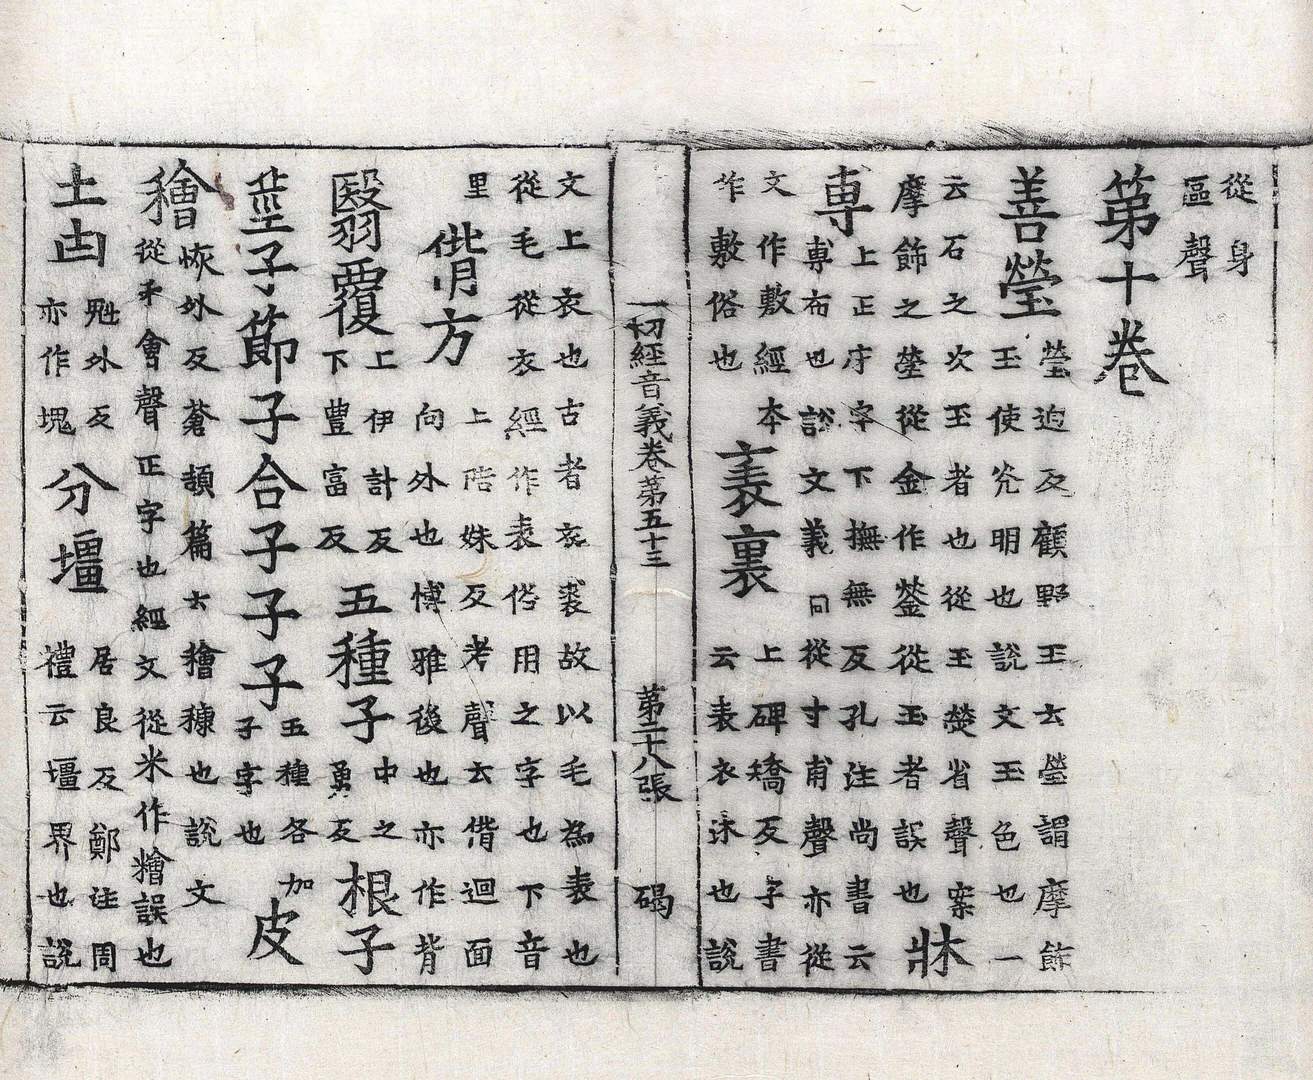 從身
區聲
第十卷
善瑩
瑩迥反顧野王云瑩謂摩飾
玉使光明也說文玉色也一
云石之次玉者也從玉熒省聲案
摩飾之瑩從金作鎣從玉者誤也
牀
尃
上正疒字下撫無反孔注尚書云
尃布也說文義同從寸甫聲亦從
文作敷經本
作敷俗也
表裏
上碑矯反字書
云表衣沬也說
文上衣也古者衣裘故以毛為表也
從毛從衣經作表俗用之字也下音
里
偝方
上陪妹反考聲云偝迴面
向外也博雅後也亦作背
翳覆
上伊計反
下豊富反
五種子
中之
勇反
根子
莖子節子合子子子
五種各加
子字也
皮
穭
恢外反蒼頡篇云穭穅也說文
從禾會聲正字也經文從米作糩誤也
土凷
魁外反
亦作塊
分壃
居良反鄭注周
禮云壃界也說
一切經音義卷第五十三 第二十八張 碣